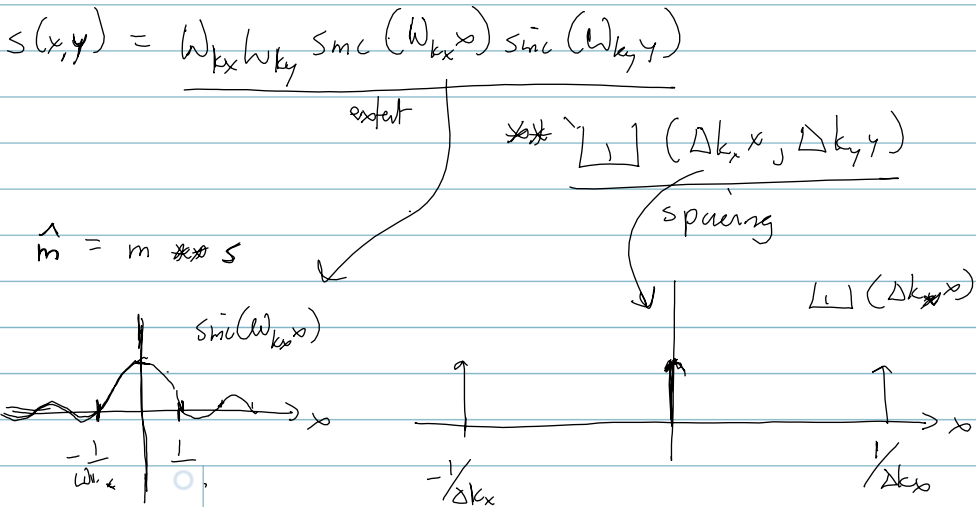 s(x,y) = W_kx W_ky sinc (W_kx x) sinc (W_ky y)
extent
** Ш (Δk_x x, Δk_y y)
spacing
m̂ = m ** s
sinc(W_kx x)
Ш (Δk_x x)
x
x
-1/W_kx
1/
-1/Δk_x
1/Δk_x